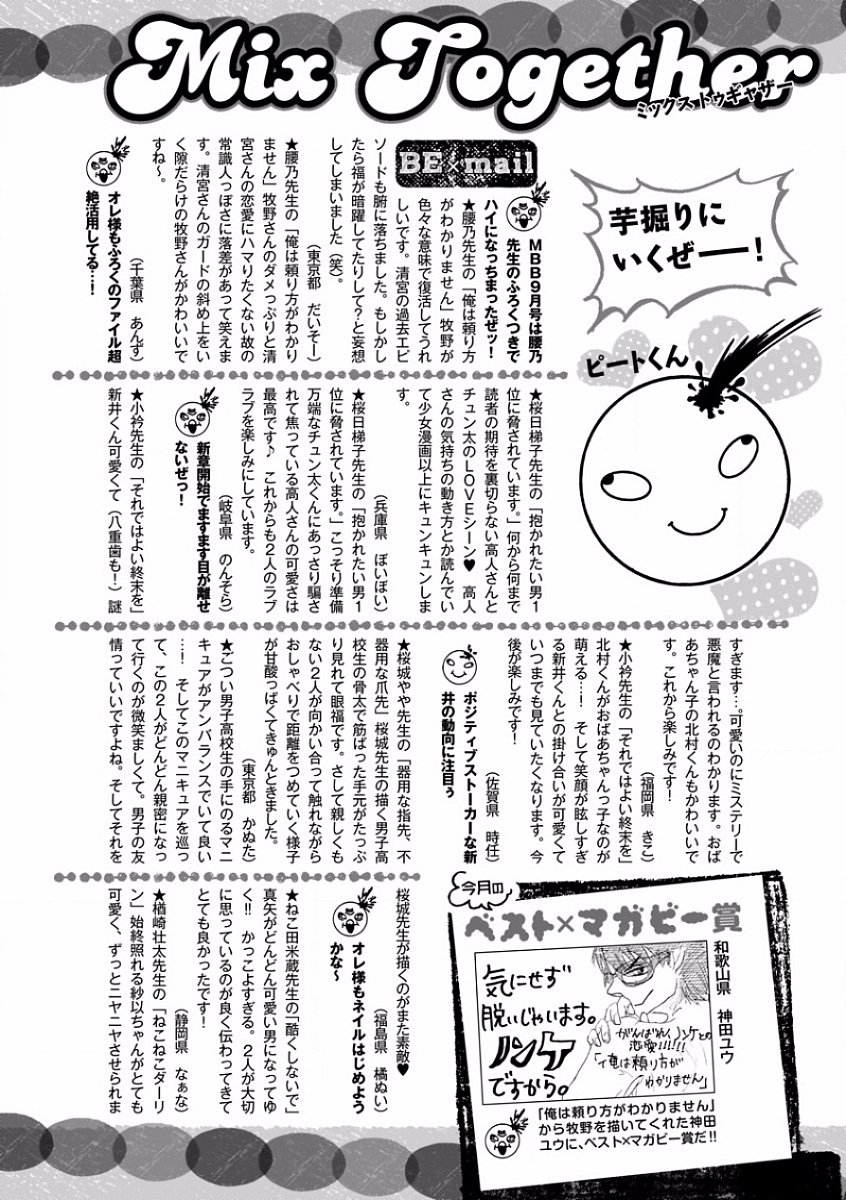 Mix Together
ミックス トゥギャザー
芋掘りに
いくぜーー!
ピートくん
BE×mail
MBB9月号は腰乃
先生のふろくつきで
ハイになっちまったぜッ!
★腰乃先生の「俺は頼り方
がわかりません」牧野が
色々な意味で復活してうれ
しいです。清宮の過去エピ
ソードも腑に落ちました。もしかし
たら福が暗躍してたりして?と妄想
してしまいました(笑)。
(東京都 だいそー)
★腰乃先生の「俺は頼り方がわかり
ません」牧野さんのダメっぷりと清
宮さんの恋愛にハマりたくない故の
常識人っぽさに落差があって笑えま
す。清宮さんのガードの斜め上をい
く隙だらけの牧野さんがかわいいで
すね~。
(千葉県 あんず)
オレ様もふろくのファイル超
絶活用してる…!
★桜日梯子先生の「抱かれたい男1
位に脅されています。」何から何まで
読者の期待を裏切らない高人さんと
チュン太のLOVEシーン♥ 高人
さんの気持ちの動き方とか読んでい
て少女漫画以上にキュンキュンしま
す。
(兵庫県 ぽいぽい)
★桜日梯子先生の「抱かれたい男1
位に脅されています。」こっそり準備
万端なチュン太くんにあっさり騙さ
れて焦っている高人さんの可愛さは
最高です♪ これからも2人のラブ
ラブを楽しみにしています。
(岐阜県 のんそら)
新章開始でますます目が離せ
ないぜっ!
★小衿先生の「それではよい終末を」
新井くん可愛くて(八重歯も!)謎
すぎます…。可愛いのにミステリーで
悪魔と言われるのわかります。おば
あちゃん子の北村くんもかわいいで
す。これから楽しみです!
(福岡県 きこ)
★小衿先生の「それではよい終末を」
北村くんがおばあちゃんっ子なのが
萌える…! そして笑顔が眩しすぎ
る新井くんとの掛け合いが可愛くて
いつまでも見ていたくなります。今
後が楽しみです!
(佐賀県 時任)
ポジティブストーカーな新
井の動向に注目ぅ
★桜城やや先生の「器用な指先、不
器用な爪先」桜城先生の描く男子高
校生の骨太で筋ばった手元がたっぷ
り見れて眼福です。さして親しくも
ない2人が向かい合って触れながら
おしゃべりで距離をつめていく様子
が甘酸っぱくてきゅんときました。
(東京都 かぬた)
★ごつい男子高校生の手にのるマニ
キュアがアンバランスでいて良い
…! そしてこのマニキュアを巡っ
て、この2人がどんどん親密になっ
て行くのが微笑ましくて。男子の友
情っていいですよね。そしてそれを
桜城先生が描くのがまた素敵♥
(福島県 橘ぬい)
オレ様もネイルはじめよう
かな~
★ねこ田米蔵先生の「酷くしないで」
真矢がどんどん可愛い男になってゆ
く!! かっこよすぎる。2人が大切
に思っているのが良く伝わってきて
とても良かったです!
(静岡県 なぁな)
★楢崎壮太先生の「ねこねこダーリ
ン」始終照れる紗以ちゃんがとても
可愛く、ずっとニヤニヤさせられま
今月の
ベスト×マガビー賞
和歌山県 神田ユウ
気にせず
脱いじゃいます。
ノンケ
ですから。
がんばれ、ノンケとの
恋愛!!!!!
「俺は頼り方が
わかりません」
「俺は頼り方がわかりません」
から牧野を描いてくれた神田
ユウに、ベスト×マガビー賞だ!!